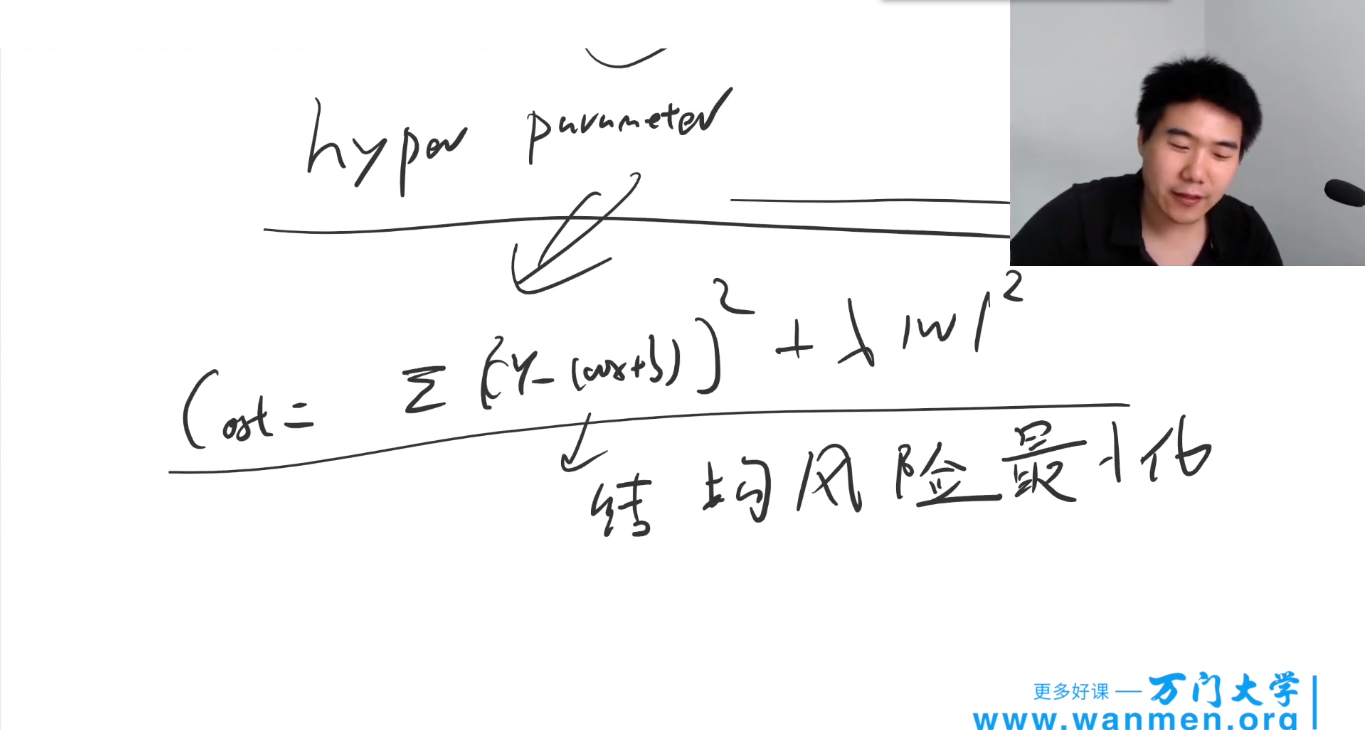 hyper parameter
Cost = Σ (y - (wx+b))² + λ |w|²
结构风险最小化
更多好课 — 万门大学
www.wanmen.org